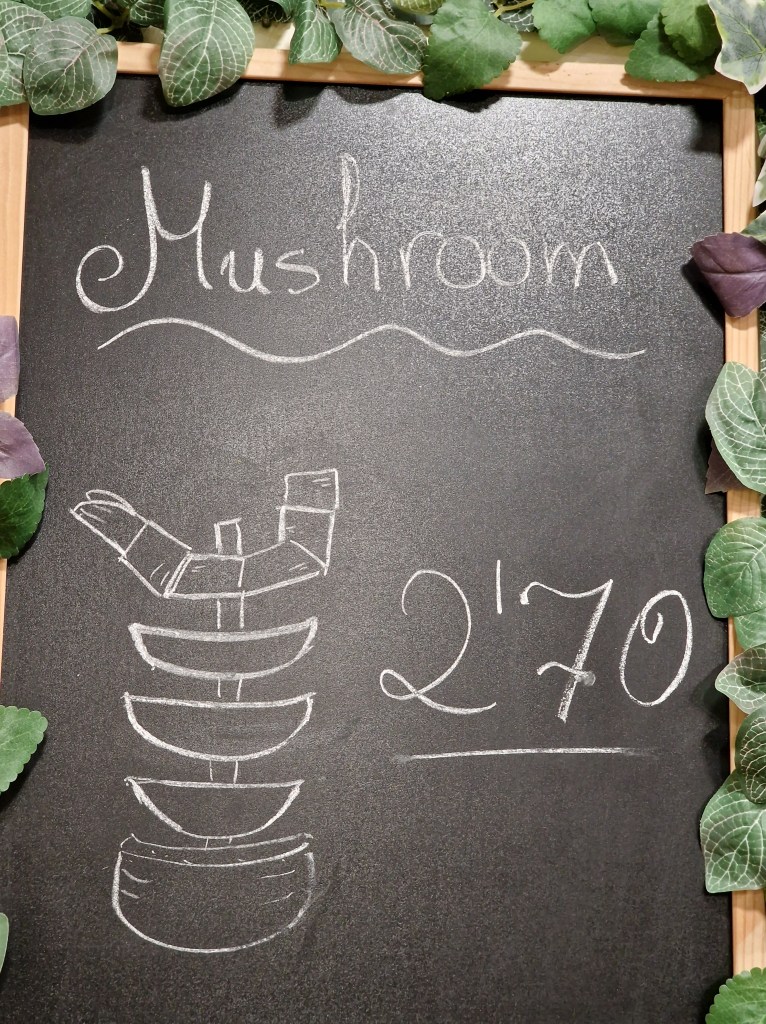 Mushroom
2'70